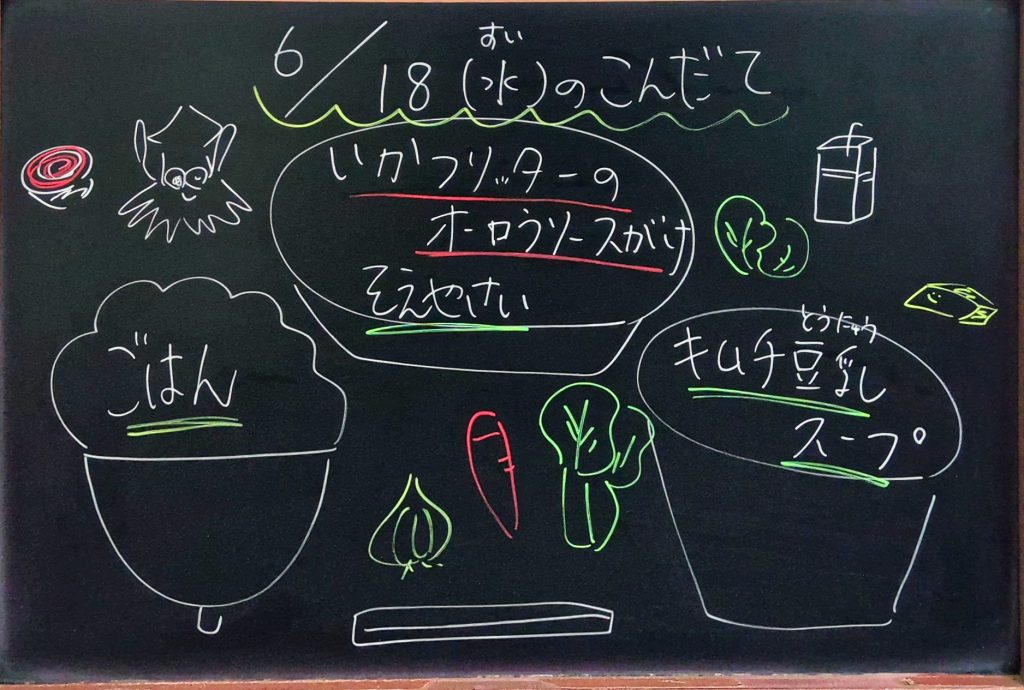 6/18(水)のこんだて
すい
いかフリッターの
オーロラソースがけ
そえやさい
ごはん
とうにゅう
キムチ豆乳
スープ